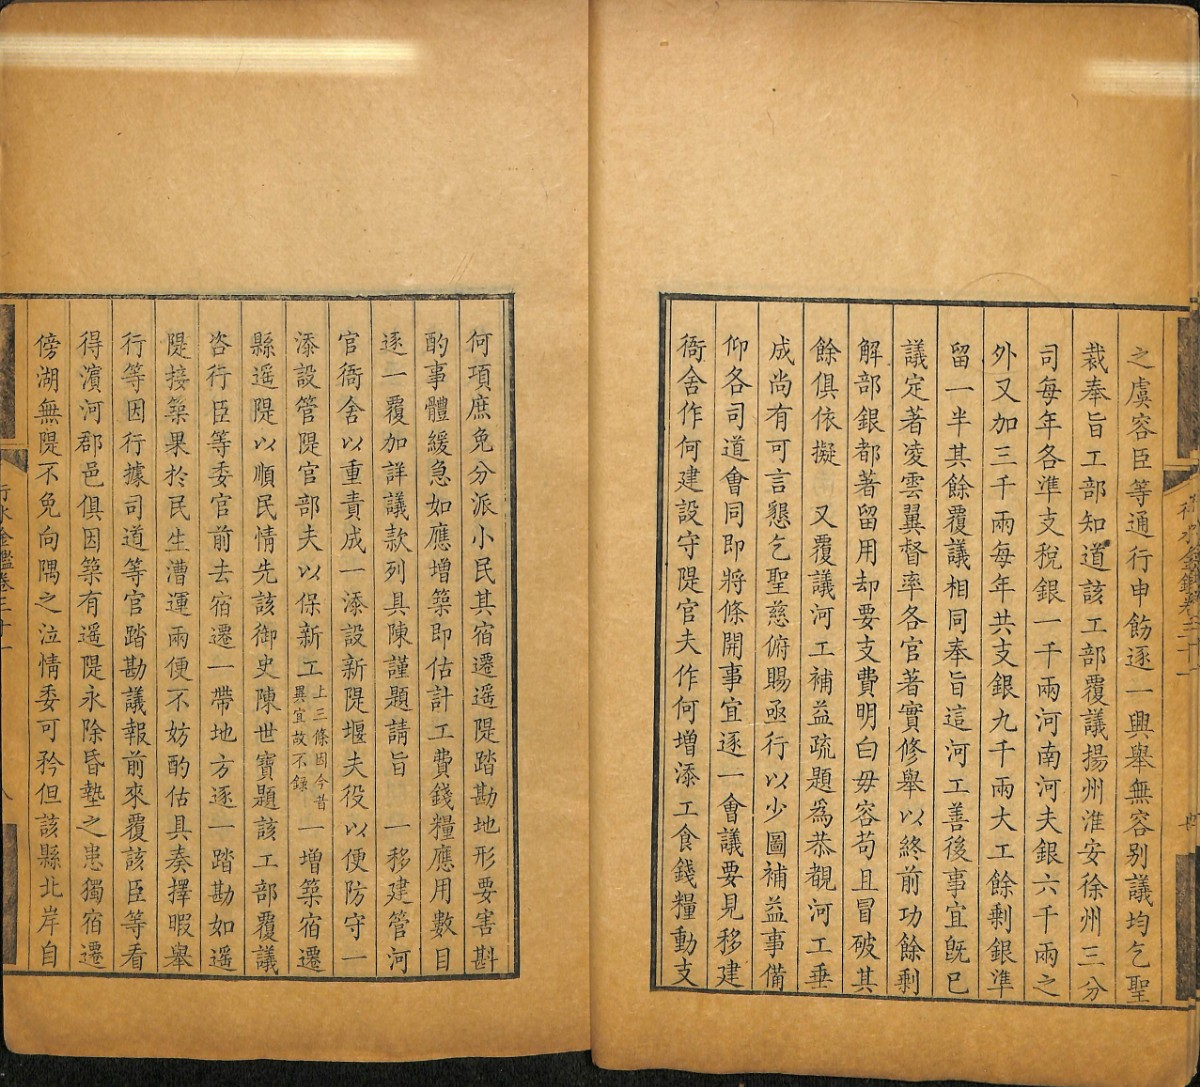 之虞容臣等通行申飭逐一興舉無容别議均乞聖
裁奉旨工部知道該工部覆議揚州淮安徐州三分
司每年各準支稅銀一千兩河南河夫銀六千兩之
外又加三千兩每年共支銀九千兩大工餘剩銀準
留一半其餘覆議相同奉旨這河工善後事宜既已
議定著凌雲翼督率各官著實修舉以終前功餘剩
解部銀都著留用却要支費明白毋容苟且冒破其
餘俱依擬　又覆議河工補益疏題為恭覩河工垂
成尚有可言懇乞聖慈俯賜亟行以少圖補益事備
仰各司道會同即將條開事宜逐一會議要見移建
衙舍作何建設守隄官夫作何增添工食錢糧動支
何項庶免分派小民其宿遷遥隄踏勘地形要害斟
酌事體緩急如應增築即估計工費錢糧應用數目
逐一覆加詳議款列具陳謹題請旨　一移建管河
官衙舍以重責成一添設新隄堰夫役以便防守一
添設管隄官部夫以保新工上三條因今昔異宜故不錄一增築宿遷
縣遥隄以順民情先該御史陳世寶題該工部覆議
咨行臣等委官前去宿遷一帶地方逐一踏勘如遥
隄接築果於民生漕運兩便不妨酌估具奏擇暇舉
行等因行據司道等官踏勘議報前來覆該臣等看
得濱河郡邑俱因築有遥隄永除昏墊之患獨宿遷
傍湖無隄不免向隅之泣情委可矜但該縣北岸自
行水金鑑卷三十一
八